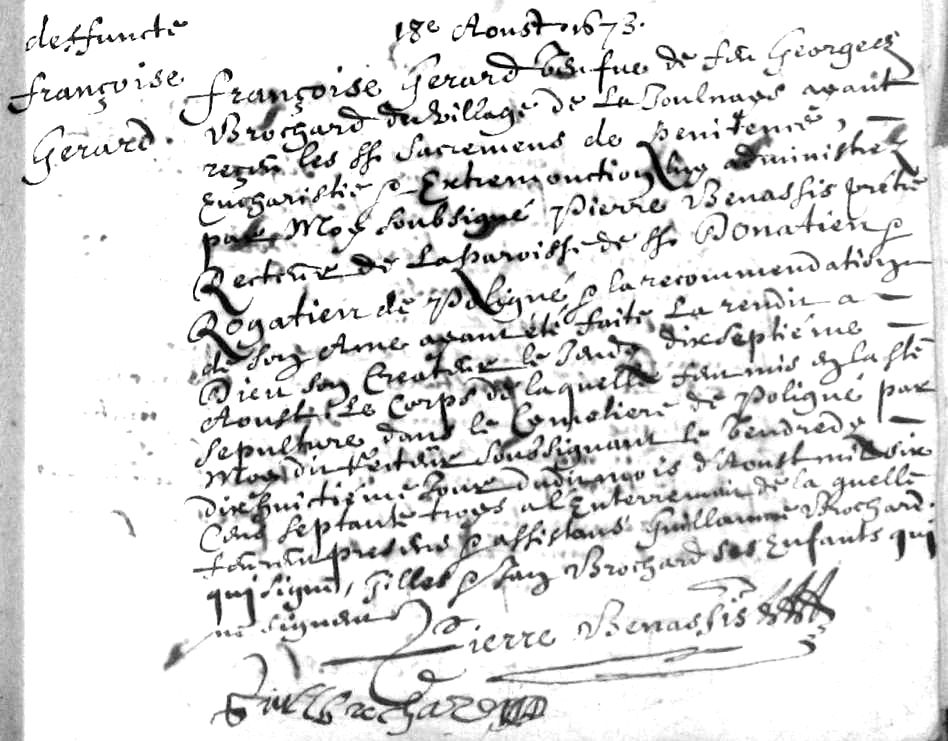 deffuncte
françoise
Gerard
18e Aoust 1673.
françoise Gerard vefue de feu Georges
Brochard du village de La Joulnays ayant
reçeu les ss. Sacremens de penitence,
Eucharistie & Extremonction luy administrez
par Moy soubsigné Pierre Benassis prêtre
Recteur de La paroisse de ss. Donatien &
Rogatien de Poligné & la recommendation
de son Ame ayant été faite La rendit a
Dieu son Createur le Jeudy dixseptiéme
Aoust. Le Corps de laquelle feu mis en la ste
sepulture dans le Cemetiere de Poligné par
Moy dit Recteur soussignant le Vendredy
dixhuictiéme Jour dudit mois d'Aoust mil six
Cens septante troys a l'Enterrement de la quelle
feurent presens & assistans Guillaume Brochard
qui signe, Gilles & Jan Brochard ses Enfants qui
ne signent
Pierre Benassis
Guill Brochard